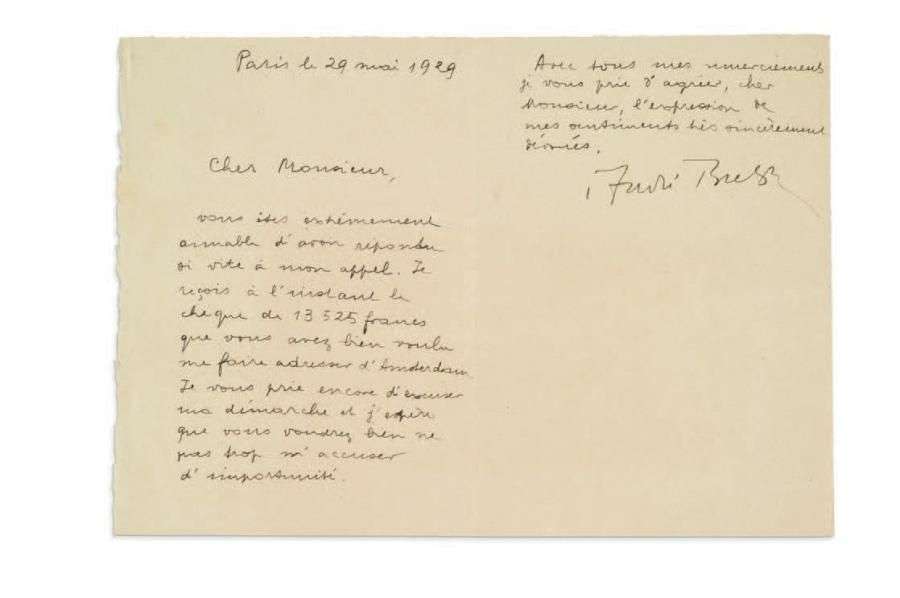 Paris le 29 mai 1929
Cher Monsieur,
vous êtes extrêmement
aimable d'avoir répondu
si vite à mon appel. Je
reçois à l'instant le
chèque de 13 525 francs
que vous avez bien voulu
me faire adresser d'Amsterdam.
Je vous prie encore d'excuser
ma démarche et j'espère
que vous voudrez bien ne
pas trop m'accuser
d'importunité.
Avec tous mes remerciements
je vous prie d'agréer, cher
Monsieur, l'expression de
mes sentiments très sincèrement
dévoués.
André Breton